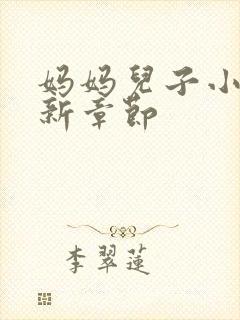 妈妈兒子小
新章節
李翠蓮